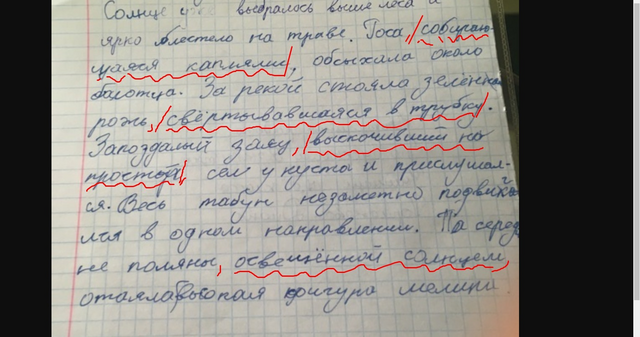 Солнце уже выбралось выше леса и
ярко блестело на траве. Роса, собираю-
щаяся каплями, обсыхала около
болотца. За рекой стояла зелёная
рожь, свёртывавшаяся в трубку.
Запоздалый заяц, выскочивший на
простор, сел у куста и прислушал-
ся. Весь табун незаметно подвигá
лся в одном направлении. По серед
не поляны, освещённой солнцем,
стояла высокая фигура мелина.